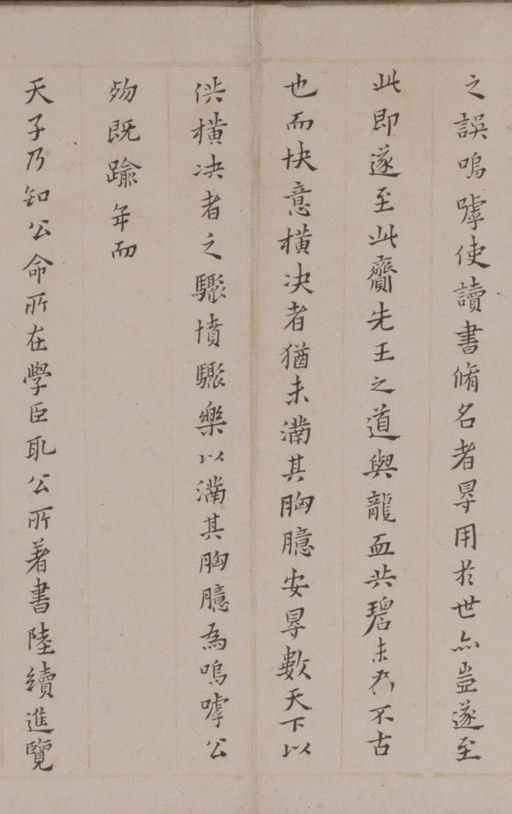 之誤嗚嘑使讀書脩名者㝵用於世亦豈遂至
此即遂至此齎先王之道與龍血共碧未為不古
也而快意橫決者猶未滿其胸臆安㝵數天下以
供橫決者之驟憤驟樂以滿其胸臆為嗚嘑公
歾既踰年而
天子乃知公命所在學臣取公所著書陸續進覽